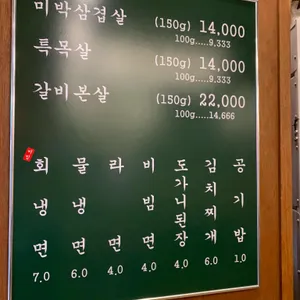 미박삼겹살 (150g) 14,000
100g.....9.333
특목살 (150g) 14,000
100g.....9.333
갈비본살 (150g) 22,000
100g.....14.666
회냉면 7.0
물냉면 6.0
라면 4.0
비빔면 4.0
도가니된장 4.0
김치찌개 6.0
공기밥 1.0